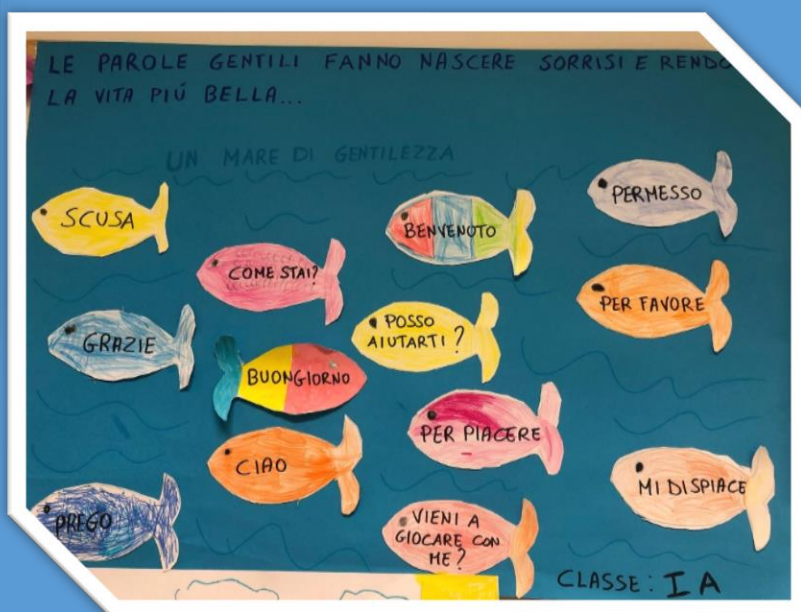 LE PAROLE GENTILI FANNO NASCERE SORRISI E RENDO
LA VITA PIÚ BELLA...
UN MARE DI GENTILEZZA
SCUSA
BENVENUTO
PERMESSO
COME STAI?
PER FAVORE
GRAZIE
POSSO
AIUTARTI?
BUONGIORNO
PER PIACERE
CIAO
MI DISPIACE
PREGO
VIENI A
GIOCARE CON
ME?
CLASSE: IA